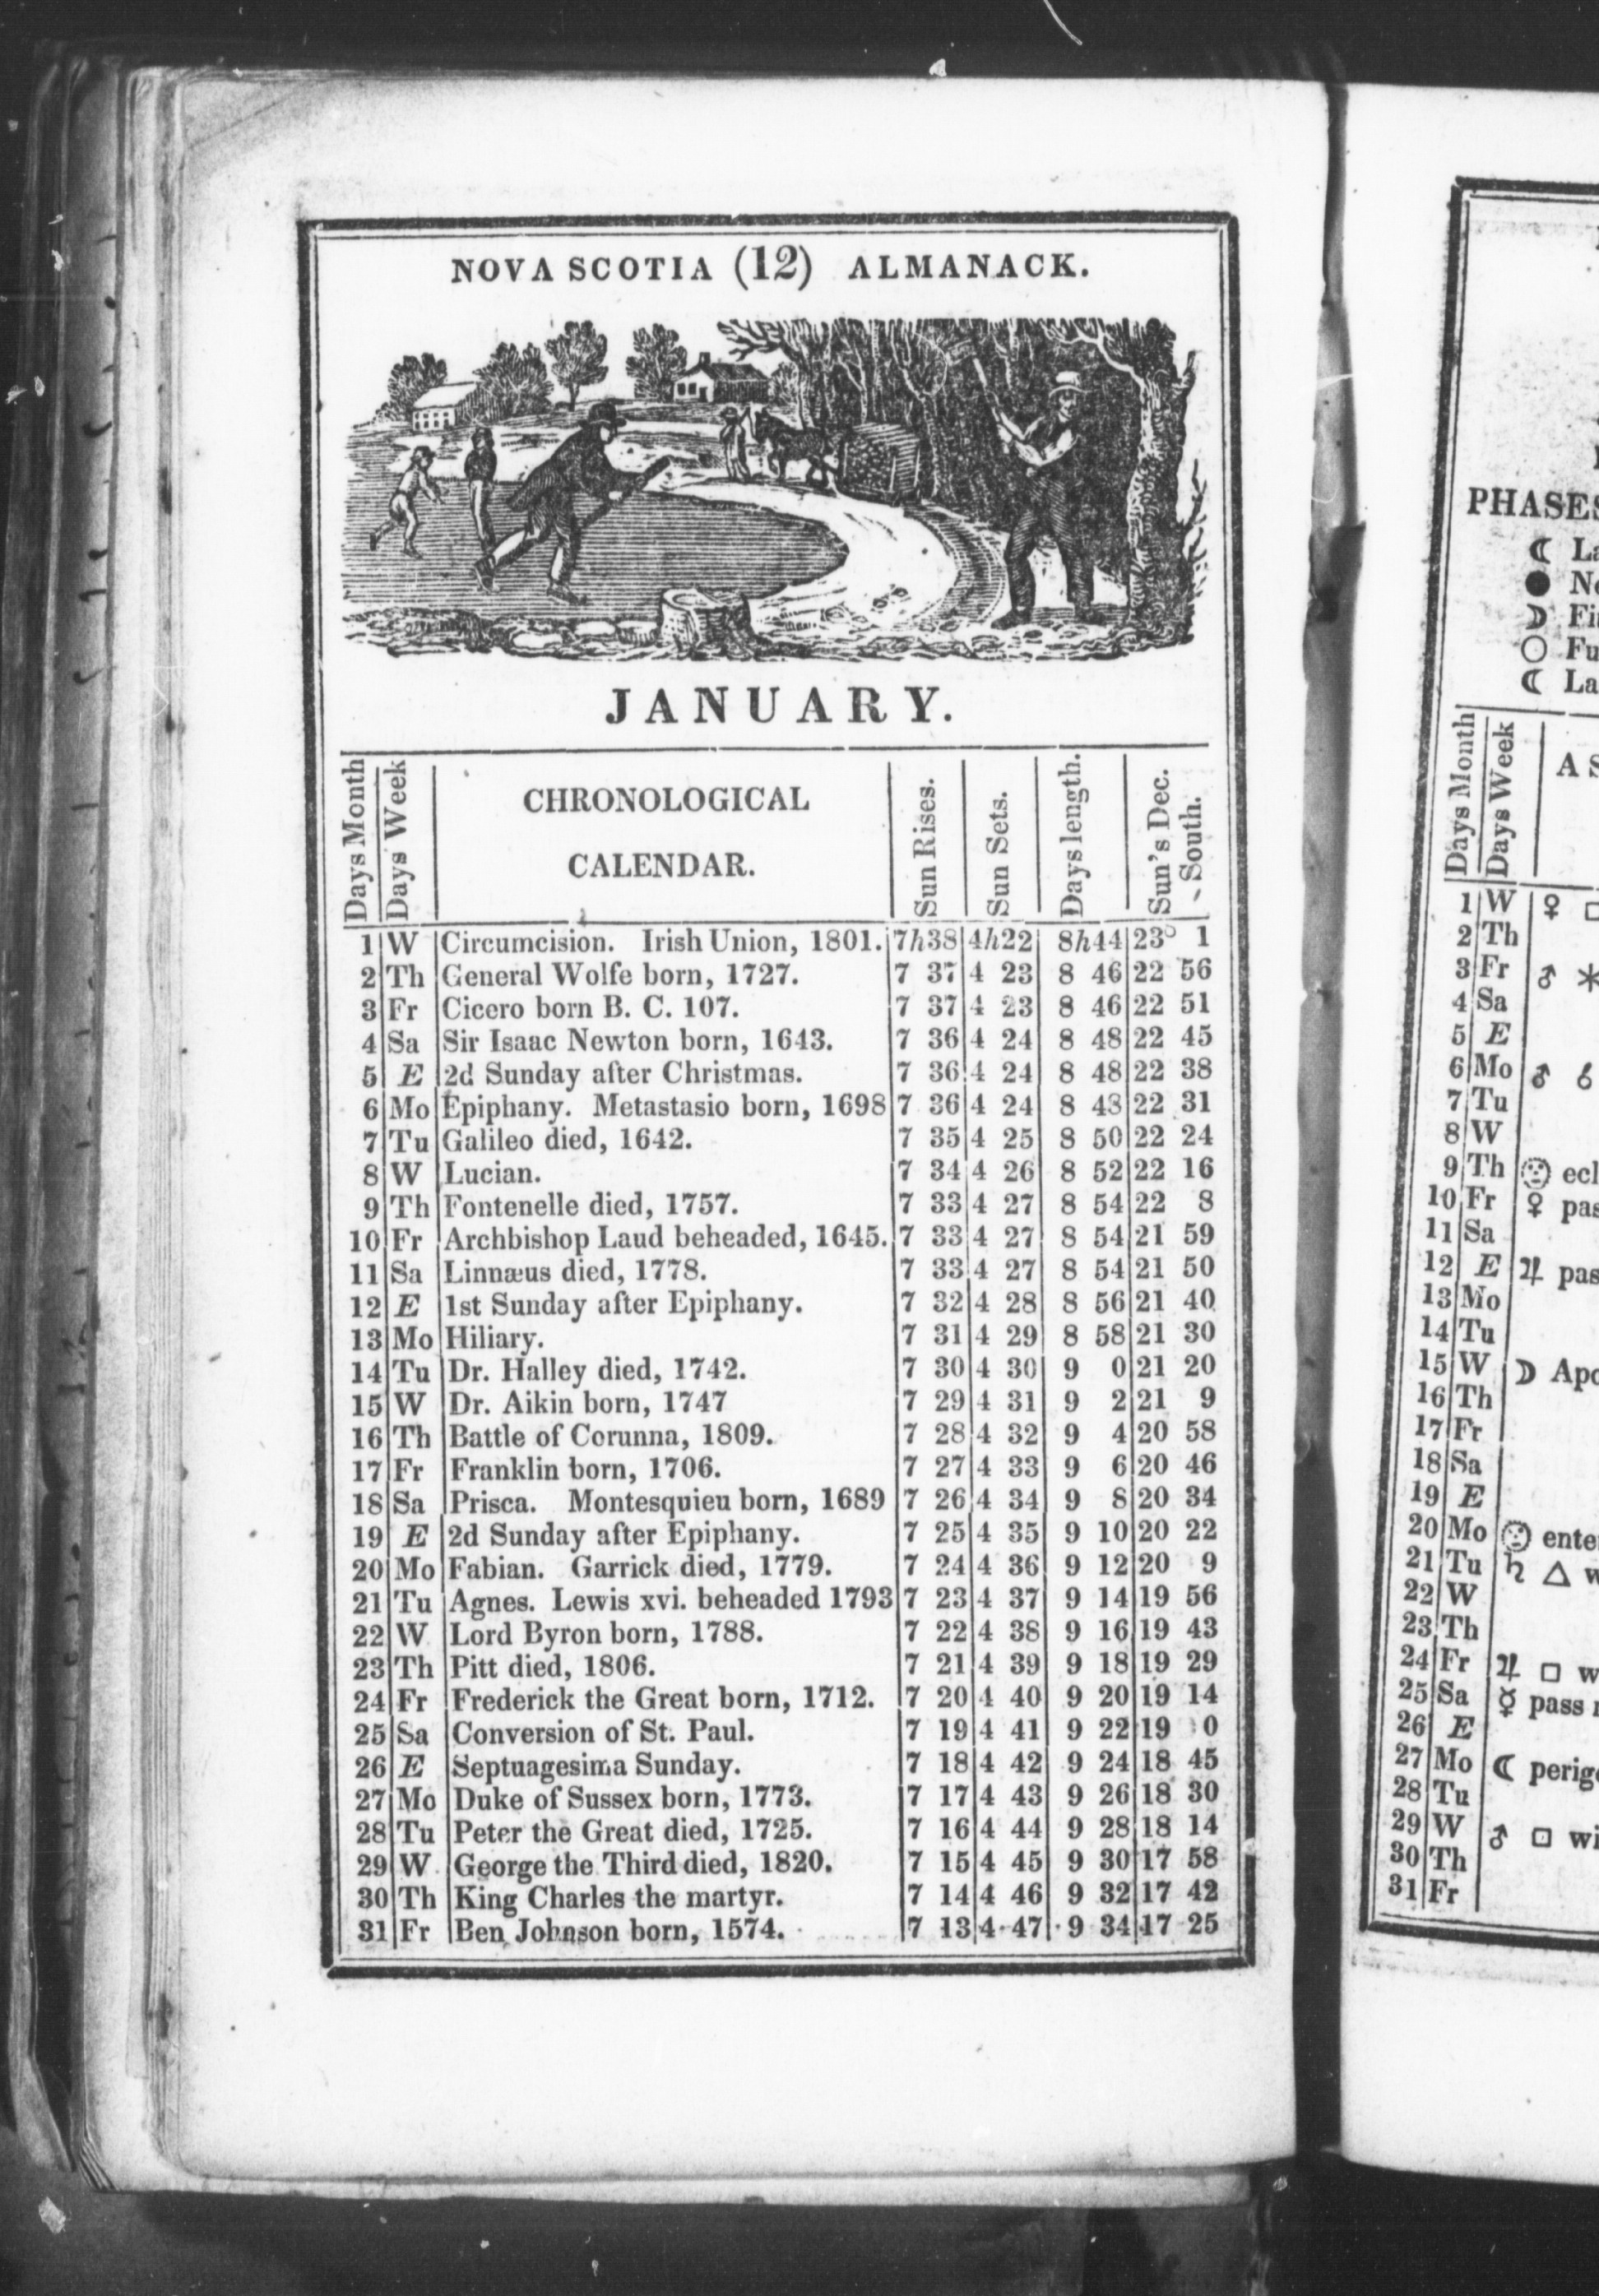 NOVA SCOTIA (12) ALMANACK.
JANUARY.
Days Month Days Week CHRONOLOGICAL CALENDAR. Sun Rises. Sun Sets. Days length. Sun's Dec. South.
1 W Circumcision. Irish Union, 1801. 7h38 4h22 8h44 23° 1
2 Th General Wolfe born, 1727. 7 37 4 23 8 46 22 56
3 Fr Cicero born B. C. 107. 7 37 4 23 8 46 22 51
4 Sa Sir Isaac Newton born, 1643. 7 36 4 24 8 48 22 45
5 E 2d Sunday after Christmas. 7 36 4 24 8 48 22 38
6 Mo Epiphany. Metastasio born, 1698 7 36 4 24 8 48 22 31
7 Tu Galileo died, 1642. 7 35 4 25 8 50 22 24
8 W Lucian. 7 34 4 26 8 52 22 16
9 Th Fontenelle died, 1757. 7 33 4 27 8 54 22 8
10 Fr Archbishop Laud beheaded, 1645. 7 33 4 27 8 54 21 59
11 Sa Linnæus died, 1778. 7 33 4 27 8 54 21 50
12 E 1st Sunday after Epiphany. 7 32 4 28 8 56 21 40
13 Mo Hiliary. 7 31 4 29 8 58 21 30
14 Tu Dr. Halley died, 1742. 7 30 4 30 9 0 21 20
15 W Dr. Aikin born, 1747 7 29 4 31 9 2 21 9
16 Th Battle of Corunna, 1809. 7 28 4 32 9 4 20 58
17 Fr Franklin born, 1706. 7 27 4 33 9 6 20 46
18 Sa Prisca. Montesquieu born, 1689 7 26 4 34 9 8 20 34
19 E 2d Sunday after Epiphany. 7 25 4 35 9 10 20 22
20 Mo Fabian. Garrick died, 1779. 7 24 4 36 9 12 20 9
21 Tu Agnes. Lewis xvi. beheaded 1793 7 23 4 37 9 14 19 56
22 W Lord Byron born, 1788. 7 22 4 38 9 16 19 43
23 Th Pitt died, 1806. 7 21 4 39 9 18 19 29
24 Fr Frederick the Great born, 1712. 7 20 4 40 9 20 19 14
25 Sa Conversion of St. Paul. 7 19 4 41 9 22 19 0
26 E Septuagesima Sunday. 7 18 4 42 9 24 18 45
27 Mo Duke of Sussex born, 1773. 7 17 4 43 9 26 18 30
28 Tu Peter the Great died, 1725. 7 16 4 44 9 28 18 14
29 W George the Third died, 1820. 7 15 4 45 9 30 17 58
30 Th King Charles the martyr. 7 14 4 46 9 32 17 42
31 Fr Ben Johnson born, 1574. 7 13 4 47 9 34 17 25
PHASES
☾ La
● Ne
☽ Fi
○ Fu
☾ La
Days Month Days Week A S
1 W ♀ □
2 Th
3 Fr ♂ ✶
4 Sa
5 E
6 Mo ♂ ☌
7 Tu
8 W
9 Th ☉ ecl
10 Fr ♀ pas
11 Sa
12 E ♃ pas
13 Mo
14 Tu
15 W ☽ Apo
16 Th
17 Fr
18 Sa
19 E
20 Mo ☉ ente
21 Tu ♄ △ w
22 W
23 Th
24 Fr ♃ □ w
25 Sa ☿ pass
26 E
27 Mo ☾ perig
28 Tu
29 W ♂ □ wi
30 Th
31 Fr